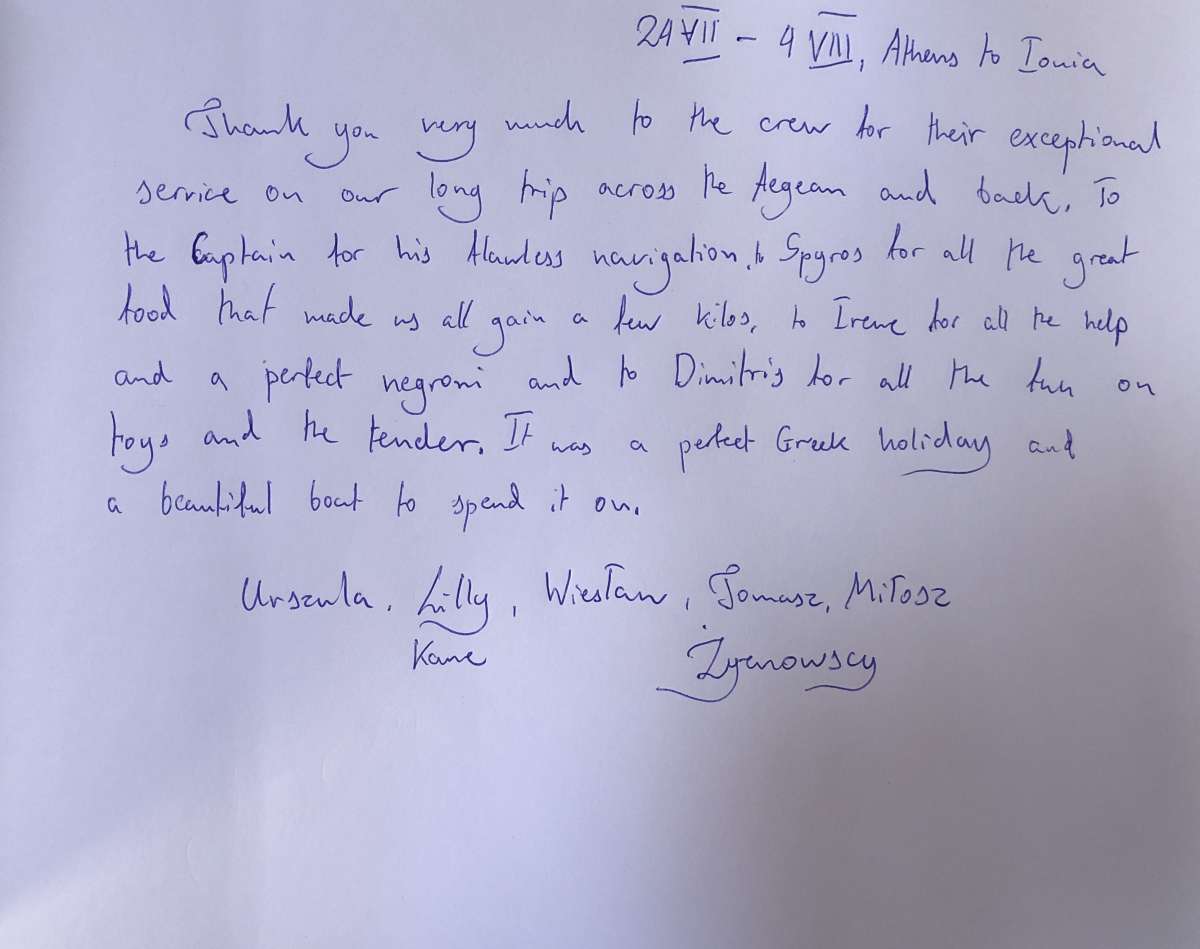 24 VII - 4 VIII, Athens to Ionia
Thank you very much to the crew for their exceptional
service on our long trip across the Aegean and back. To
the Captain for his flawless navigation, to Spyros for all the great
food that made us all gain a few kilos, to Irene for all the help
and a perfect negroni and to Dimitris for all the fun on
toys and the tender. It was a perfect Greek holiday and
a beautiful boat to spend it on.
Urszula, Lilly, Wiesław, Tomasz, Miłosz
Kane